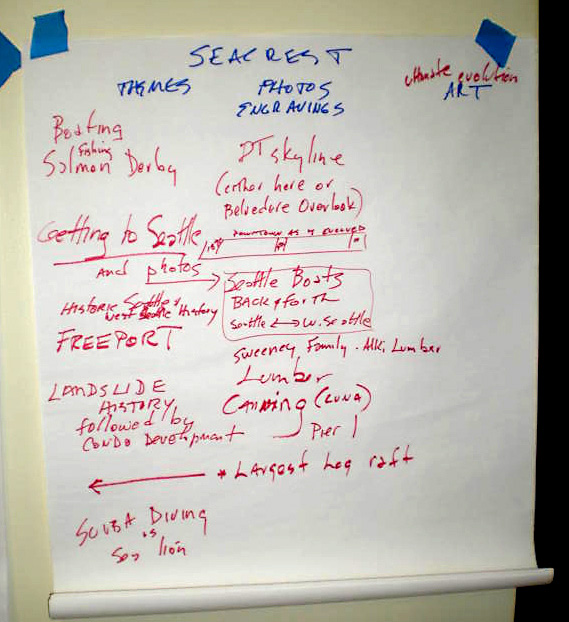 SEACREST
THEMES
PHOTOS
ENGRAVINGS
ultimate evolution
ART
Boating
Fishing
Salmon Derby
Getting to Seattle
and photos
Historic Seattle &
West Seattle History
FREEPORT
LANDSLIDE
HISTORY
followed by
CONDO Development
SCUBA Diving
vs
Sea lion
DT skyline
(either here or
Belvedere Overlook)
DOWNTOWN AS IT EVOLVED
Seattle Boats
BACK & FORTH
Seattle ↔ W. Seattle
Sweeney Family - Alki Lumber
Lumber
Canning (LUNA)
Pier 1
* LARGEST Log raft